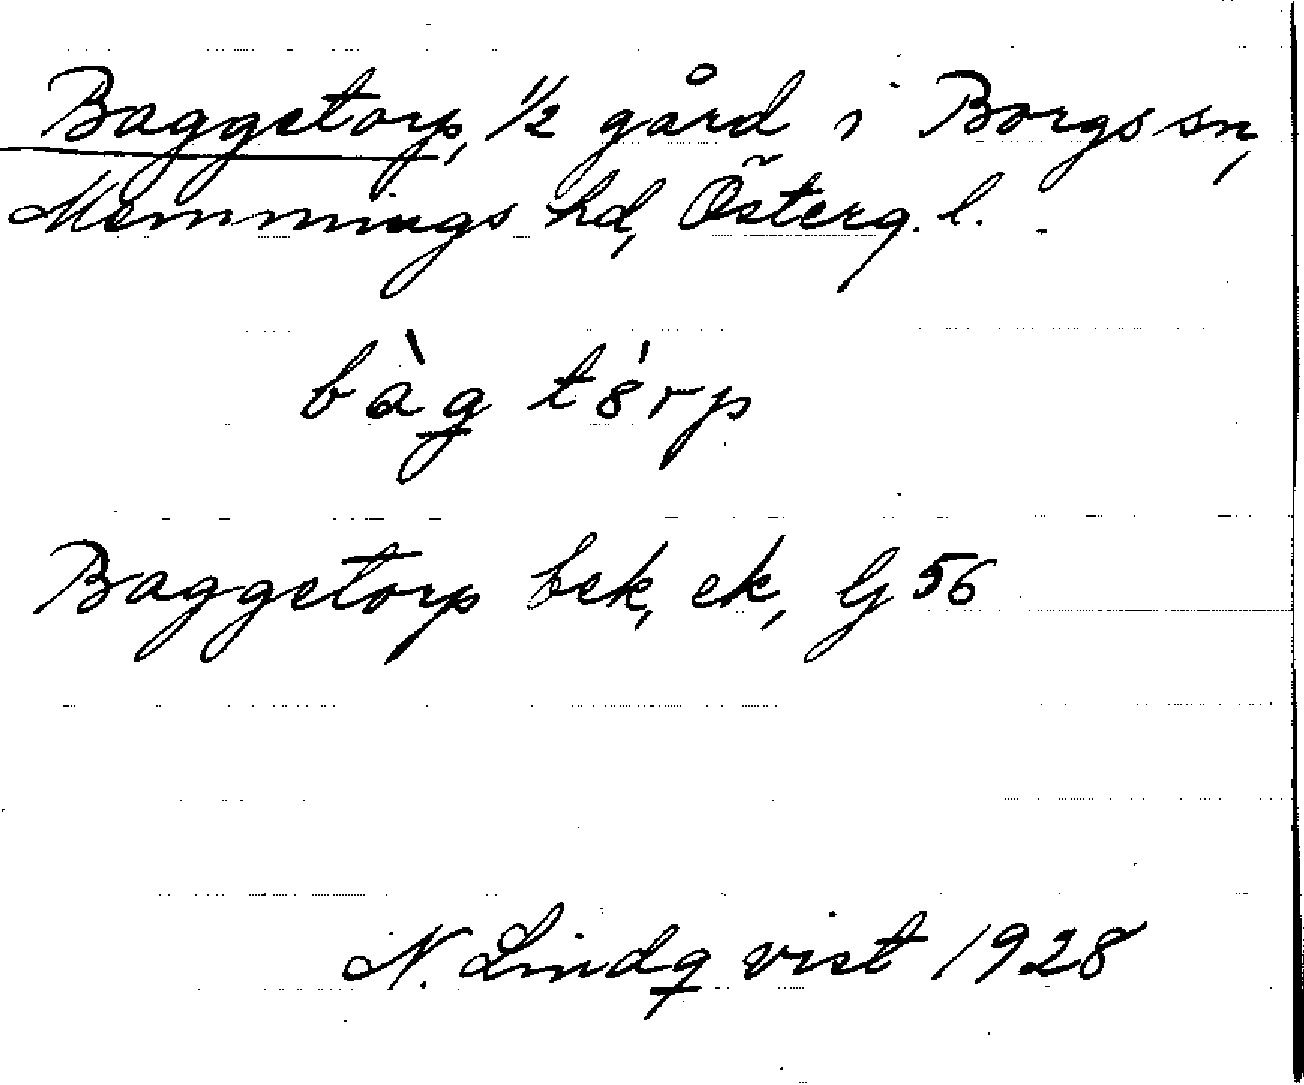 Baggetorp, 1/2 gård i Borgs sn,
Memmings hd, Österg. l.
bàg tórp
Baggetorp bek, ek, G 56
N. Lindqvist 1928